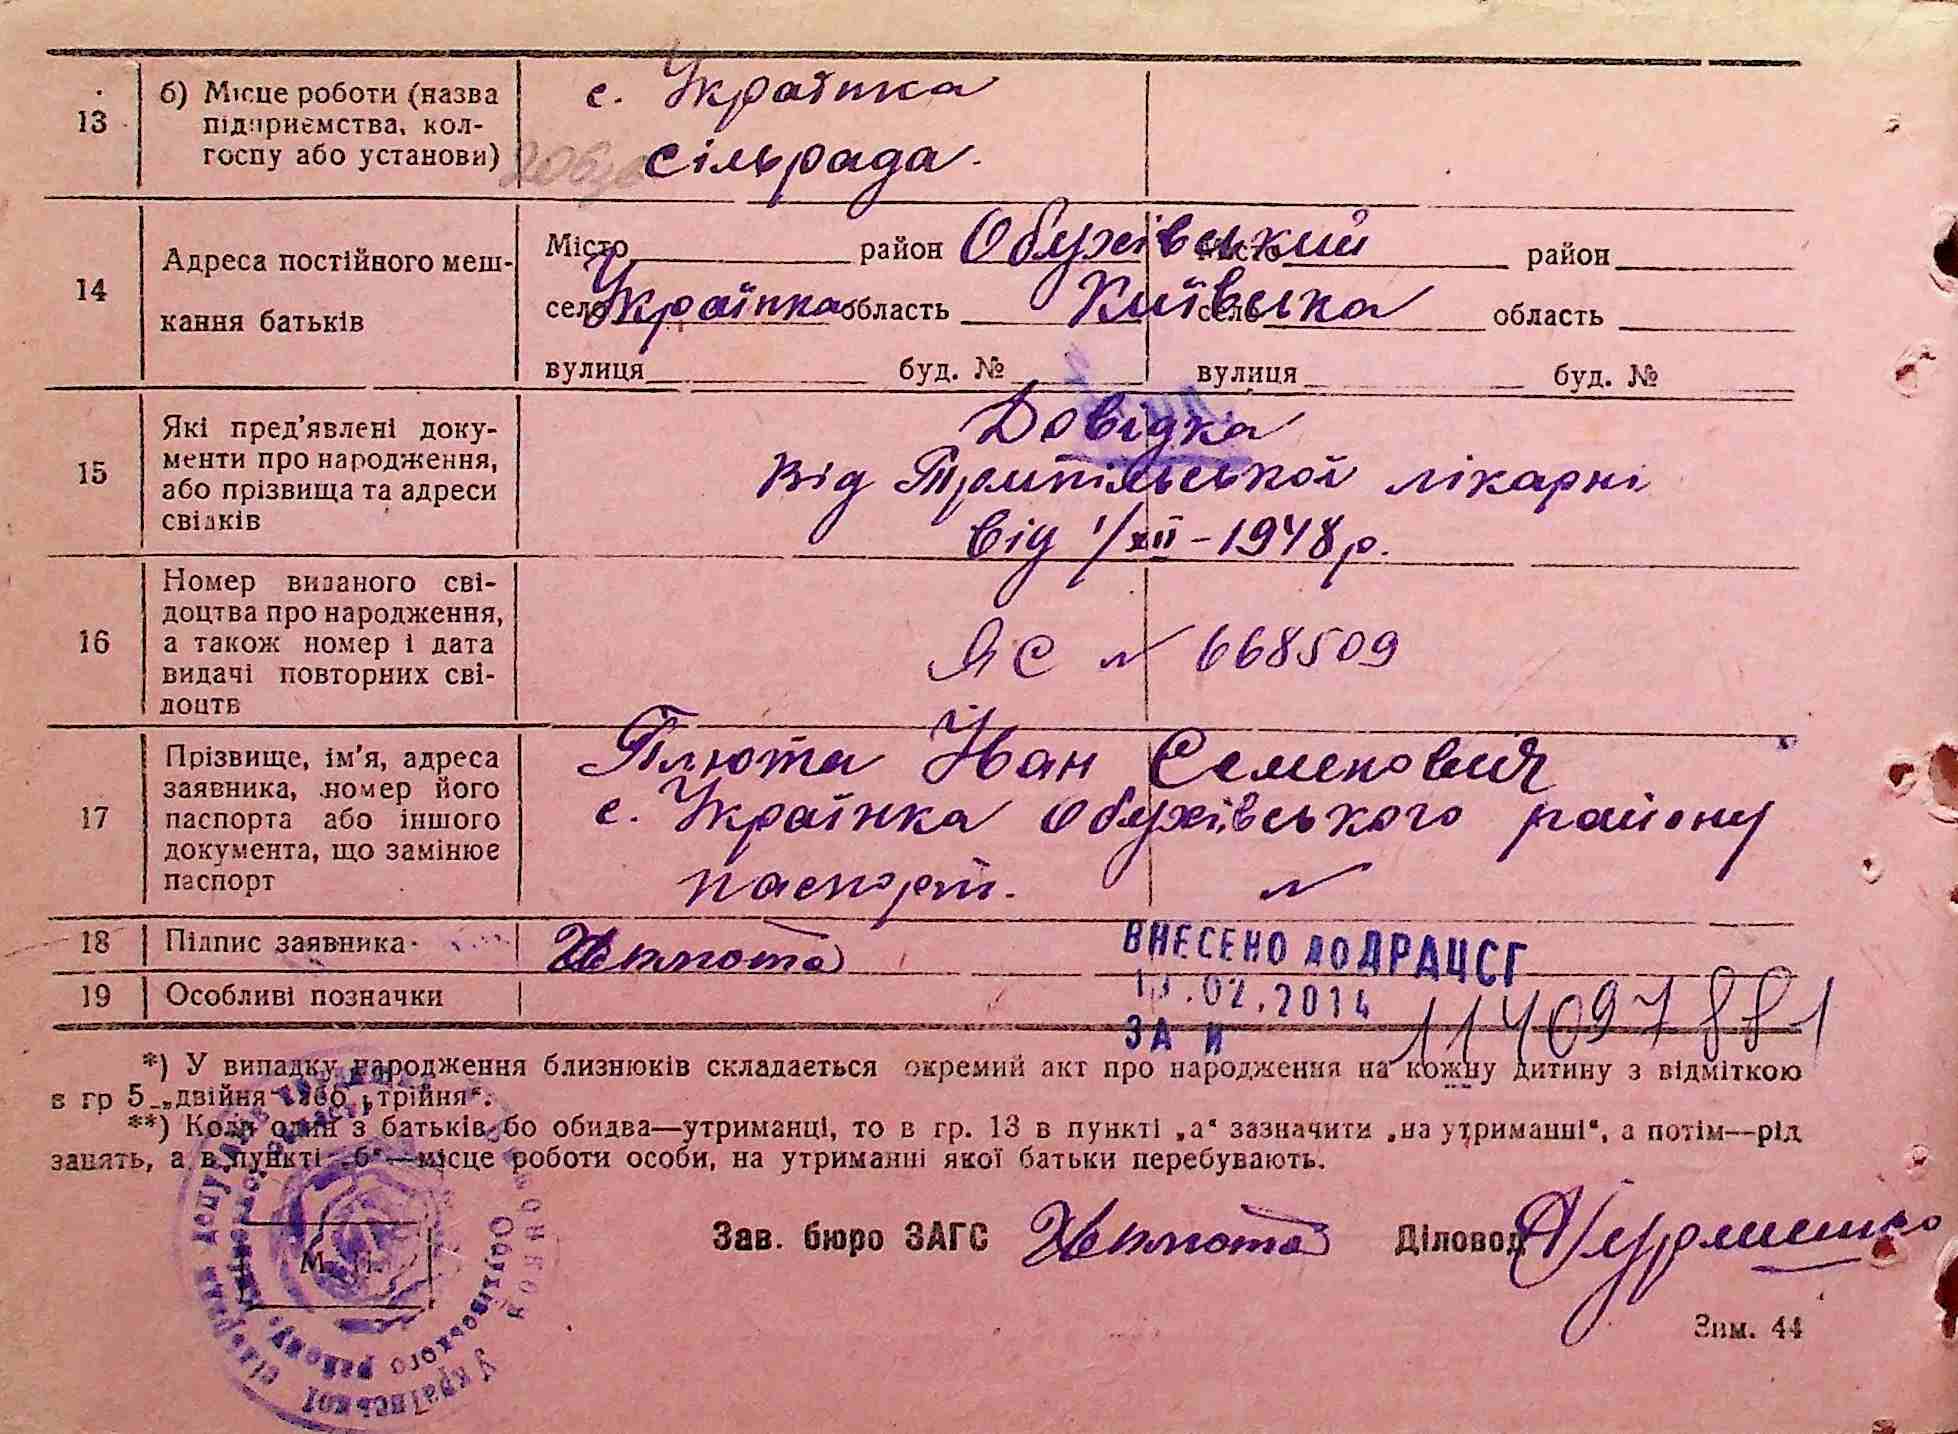 13 б) Місце роботи (назва
підприємства, кол-
госпу або установи)
с. Українка
сільрада.
14 Адреса постійного меш-
кання батьків
Місто район Обухівський місто район
село Українка область Київська село область
вулиця буд. № вулиця буд. №
15 Які пред'явлені доку-
менти про народження,
або прізвища та адреси
свідків
Довідка
від Трипільської лікарні
від 1/XII-1948р.
16 Номер виданого сві-
доцтва про народження,
а також номер і дата
видачі повторних сві-
доцтв
ЯС № 668509
17 Прізвище, ім'я, адреса
заявника, номер його
паспорта або іншого
документа, що замінює
паспорт
Плюта Іван Семенович
с. Українка Обухівського району
паспорт. №
18 Підпис заявника
ВНЕСЕНО до ДРАЦСГ
19 Особливі позначки
.02.2014
ЗА № 114097881
*) У випадку народження близнюків складається окремий акт про народження на кожну дитину з відміткою
в гр 5 „двійня“ або „трійня“.
**) Коли один з батьків бо обидва—утриманці, то в гр. 13 в пункті „а“ зазначити „на утриманні“, а потім—рід
занять, а в пункті „б“—місце роботи особи, на утриманні якої батьки перебувають.
Зав. бюро ЗАГС Діловод
М. П.
Української
Обухівського району
Зам. 44